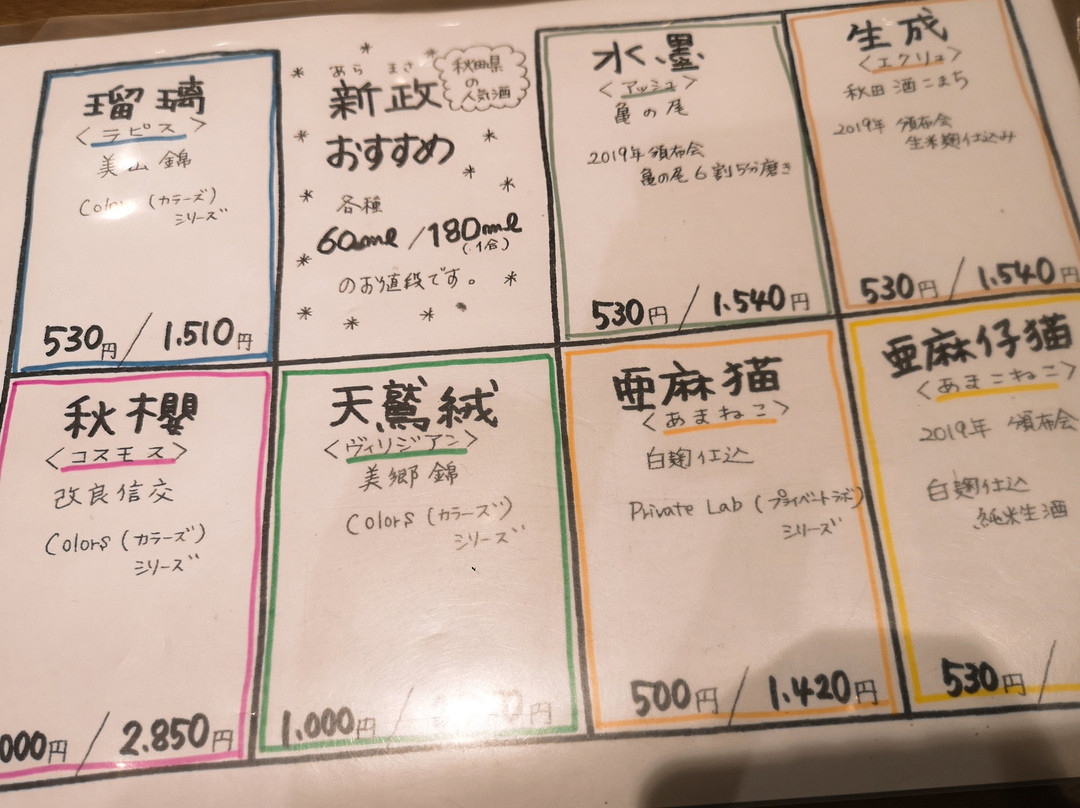 瑠璃
〈ラピス〉
美山錦
Colors (カラーズ)
シリーズ
530円 / 1.510円
あら まさ
新政
おすすめ
秋田県
の
人気酒
各種
60ml / 180ml
(1合)
のお値段です。
水墨
〈アッシュ〉
亀の尾
2019年 頒布会
亀の尾6割5分磨き
530円 / 1.540円
生成
〈エクリュ〉
秋田酒こまち
2019年 頒布会
生米麹仕込み
530円 / 1.540円
秋櫻
〈コスモス〉
改良信交
Colors (カラーズ)
シリーズ
000円 / 2.850円
天鷲絨
〈ヴィリジアン〉
美郷錦
Colors (カラーズ)
シリーズ
1.000円 / 円
亜麻猫
〈あまねこ〉
白麹仕込
Private Lab (プライベートラボ)
シリーズ
500円 / 1.420円
亜麻仔猫
〈あまこねこ〉
2019年 頒布会
白麹仕込
純米生酒
530円 /